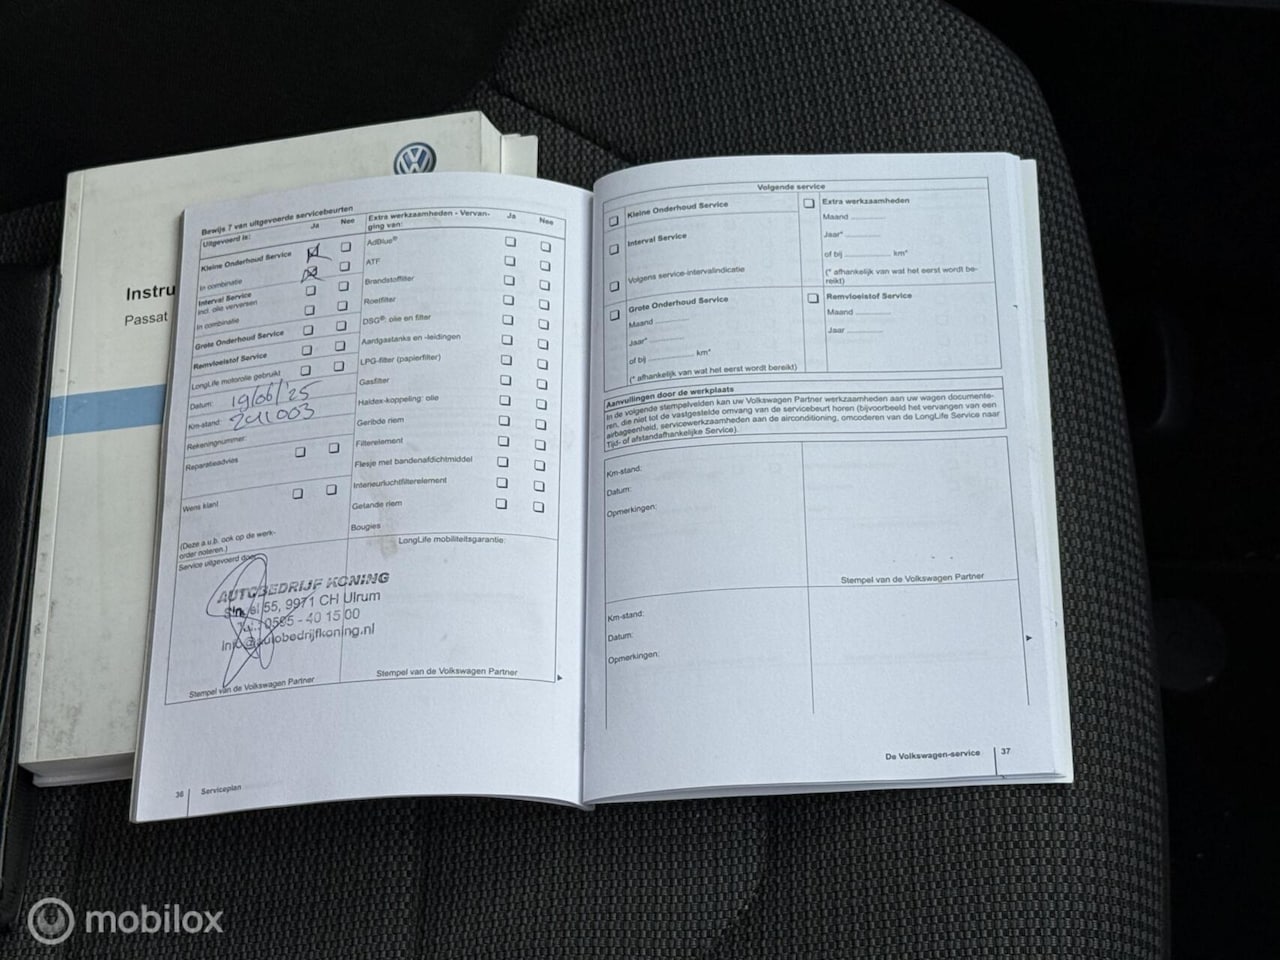 Instru
Passat
Bewijs 7 van uitgevoerde servicebeurten
Uitgevoerd is:
Ja
Nee
Kleine Onderhoud Service
In combinatie
Interval Service
incl. olie verversen
In combinatie
Grote Onderhoud Service
Remvloeistof Service
LongLife motorolie gebruikt
Datum: 19/06/'25
Km-stand: 241003
Rekeningnummer:
Reparatieadvies
Wens klant
(Deze a.u.b. ook op de werk-
order noteren.)
Service uitgevoerd door:
AUTOBEDRIJF KONING
55, 9971 CH Ulrum
Tel.: 0595 - 40 15 00
Info@autobedrijfkoning.nl
Stempel van de Volkswagen Partner
Extra werkzaamheden - Vervan-
ging van:
Ja
Nee
AdBlue®
ATF
Brandstoffilter
Roetfilter
DSG®: olie en filter
Aardgastanks en -leidingen
LPG-filter (papierfilter)
Gasfilter
Haldex-koppeling: olie
Geribde riem
Filterelement
Flesje met bandenafdichtmiddel
Interieurluchtfilterelement
Getande riem
Bougies
LongLife mobiliteitsgarantie:
Stempel van de Volkswagen Partner
36 Serviceplan
Volgende service
Kleine Onderhoud Service
Interval Service
Volgens service-intervalindicatie
Grote Onderhoud Service
Maand ............
Jaar* ............
of bij ............ km*
(* afhankelijk van wat het eerst wordt bereikt)
Extra werkzaamheden
Maand ............
Jaar* ............
of bij ............ km*
(* afhankelijk van wat het eerst wordt be-
reikt)
Remvloeistof Service
Maand ............
Jaar ............
Aanvullingen door de werkplaats
In de volgende stempelvelden kan uw Volkswagen Partner werkzaamheden aan uw wagen documente-
ren, die niet tot de vastgestelde omvang van de servicebeurt horen (bijvoorbeeld het vervangen van een
airbageenheid, servicewerkzaamheden aan de airconditioning, omcoderen van de LongLife Service naar
Tijd- of afstandafhankelijke Service).
Km-stand:
Datum:
Opmerkingen:
Stempel van de Volkswagen Partner
Km-stand:
Datum:
Opmerkingen:
De Volkswagen-service 37
mobilox